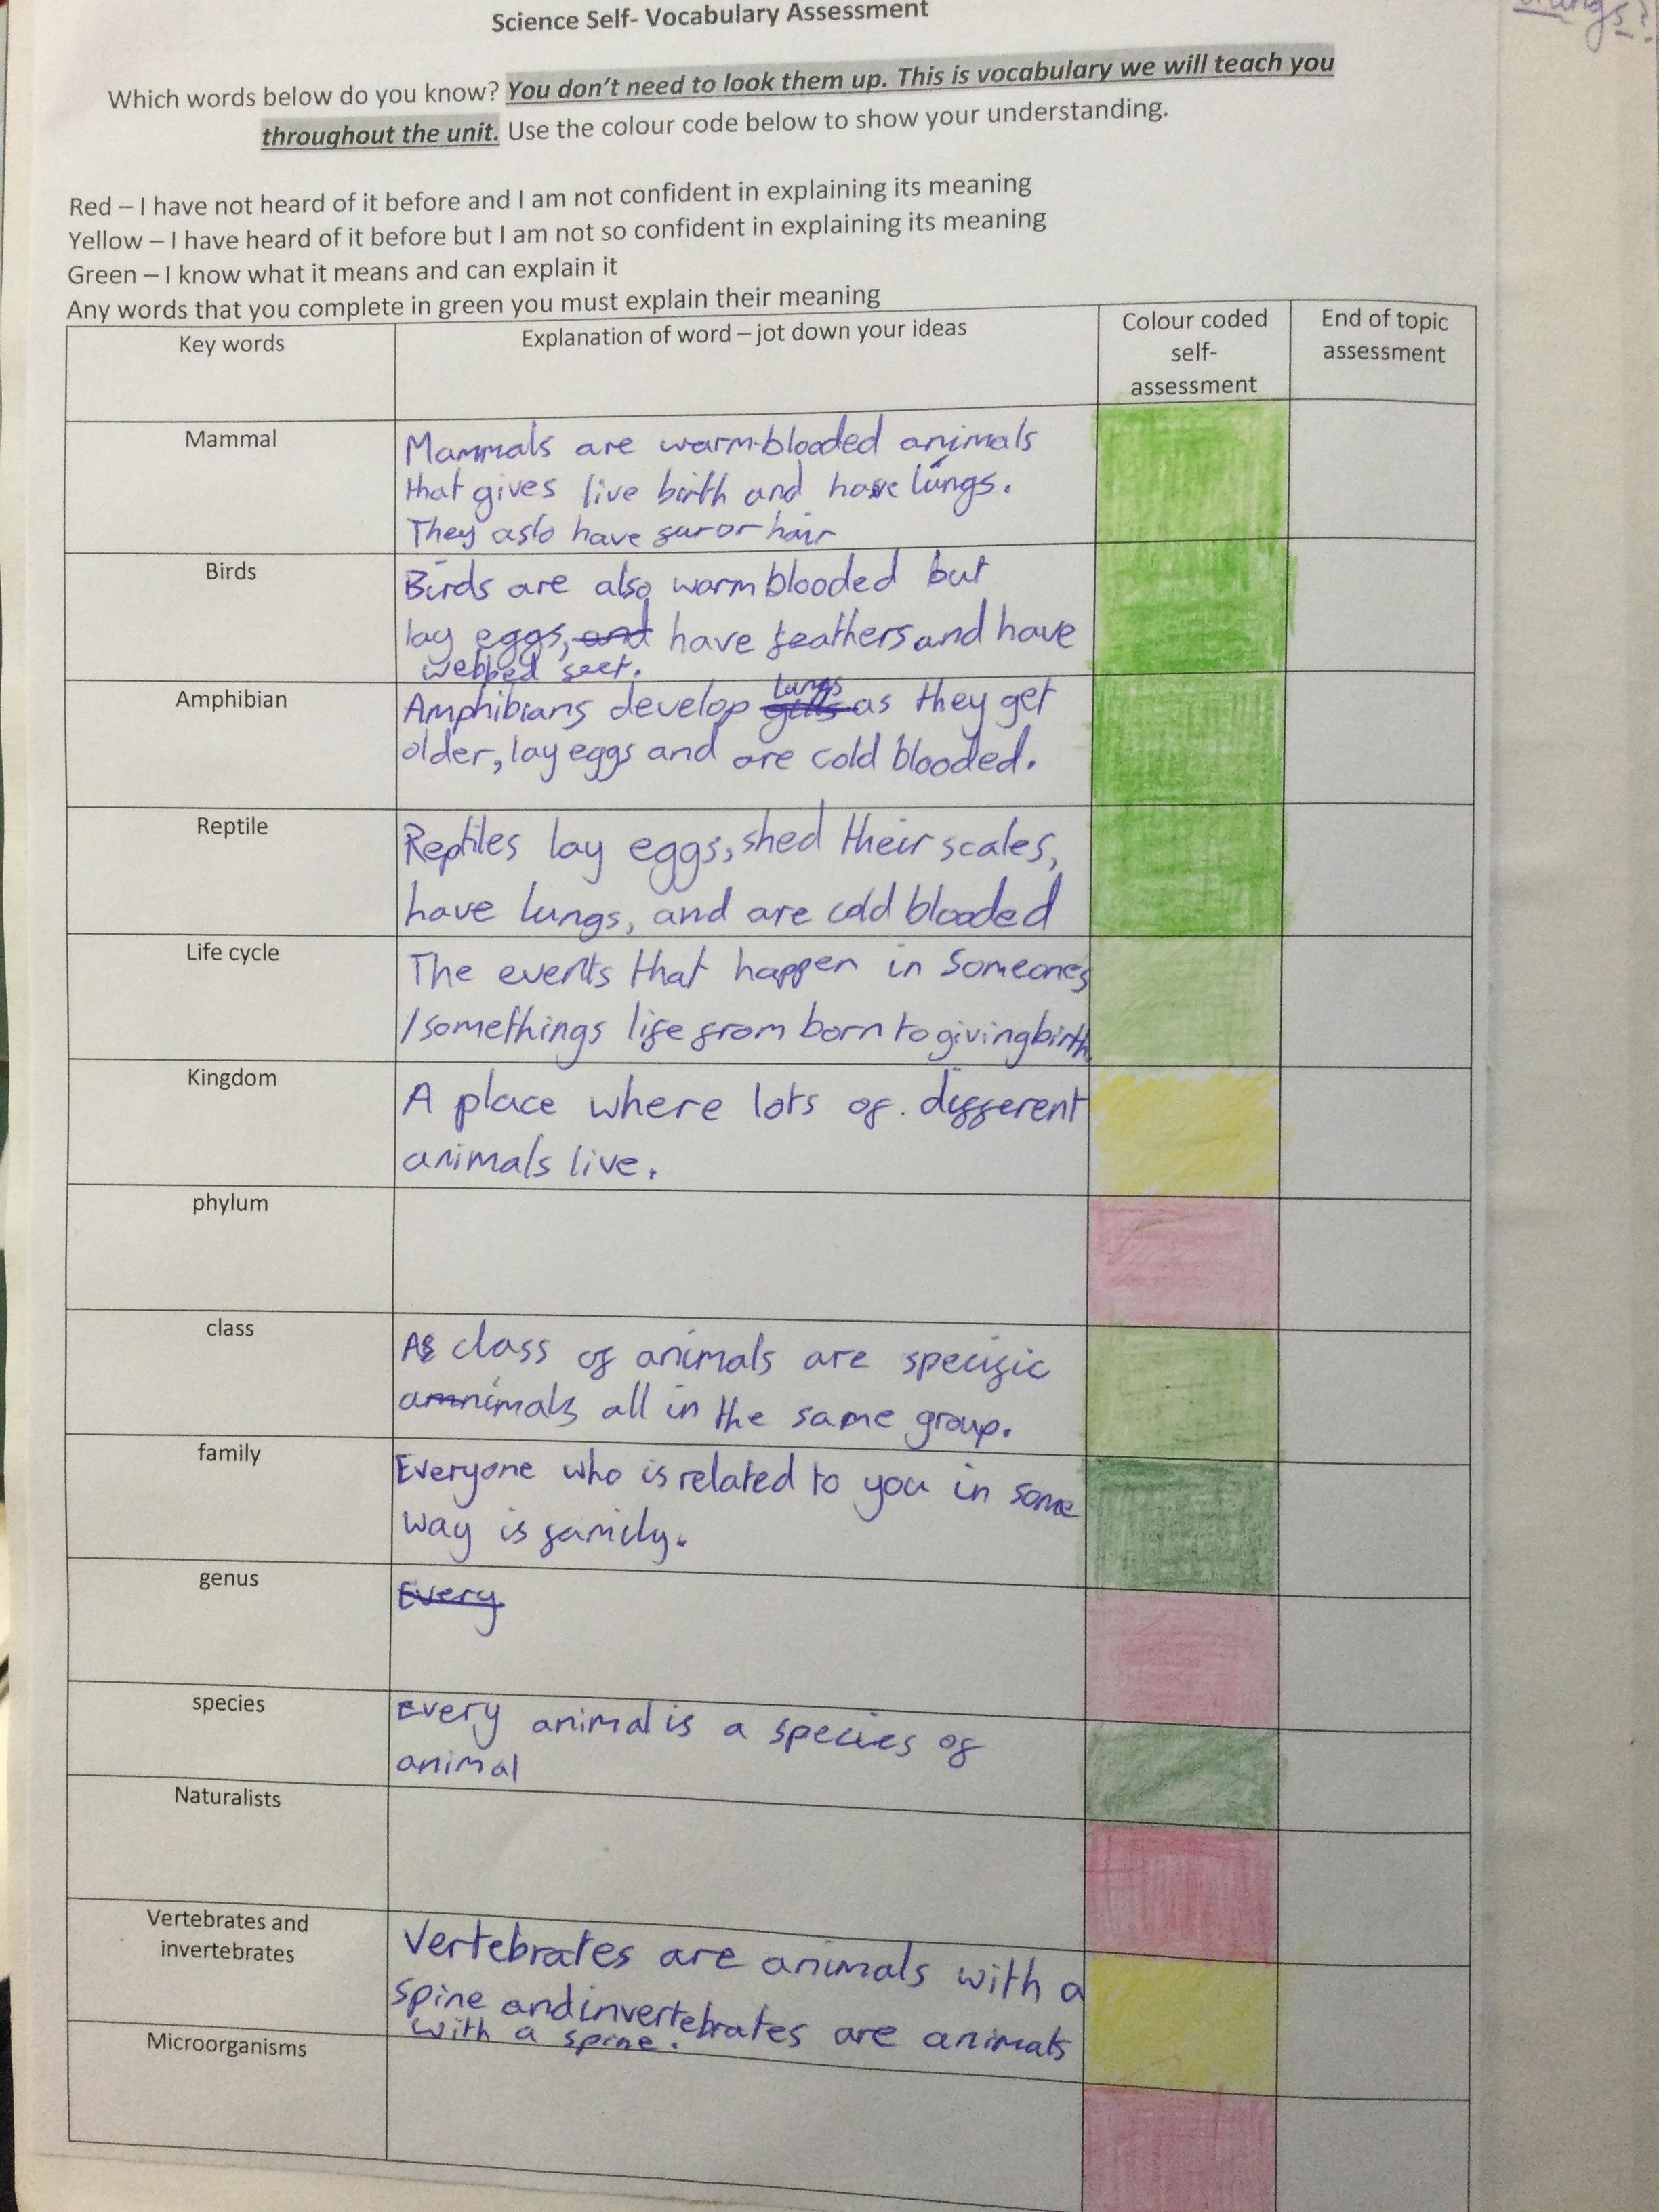 ings?
Science Self- Vocabulary Assessment
Which words below do you know? You don't need to look them up. This is vocabulary we will teach you
throughout the unit. Use the colour code below to show your understanding.
Red – I have not heard of it before and I am not confident in explaining its meaning
Yellow – I have heard of it before but I am not so confident in explaining its meaning
Green – I know what it means and can explain it
Any words that you complete in green you must explain their meaning
Key words
Explanation of word – jot down your ideas
Colour coded
self-
assessment
End of topic
assessment
Mammal
Mammals are warm-blooded animals
that gives live birth and have lungs.
They aslo have fur or hair
Birds
Birds are also warm blooded but
lay eggs, and have feathers and have
webbed feet.
Amphibian
lungs
Amphibians develop gills as they get
older, lay eggs and are cold blooded.
Reptile
Reptiles lay eggs, shed their scales,
have lungs, and are cold blooded
Life cycle
The events that happen in someones
/somethings life from born to giving birth.
Kingdom
A place where lots of different
animals live.
phylum
class
A class of animals are specific
amnimals all in the same group.
family
Everyone who is related to you in some
way is family.
genus
Every
species
Every animal is a species of
animal
Naturalists
Vertebrates and
invertebrates
Vertebrates are animals with a
spine and invertebrates are animals
with a spine.
Microorganisms